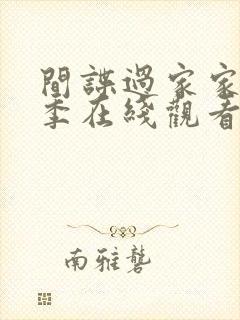 間諜過家家
季在綫觀看
南雅礱